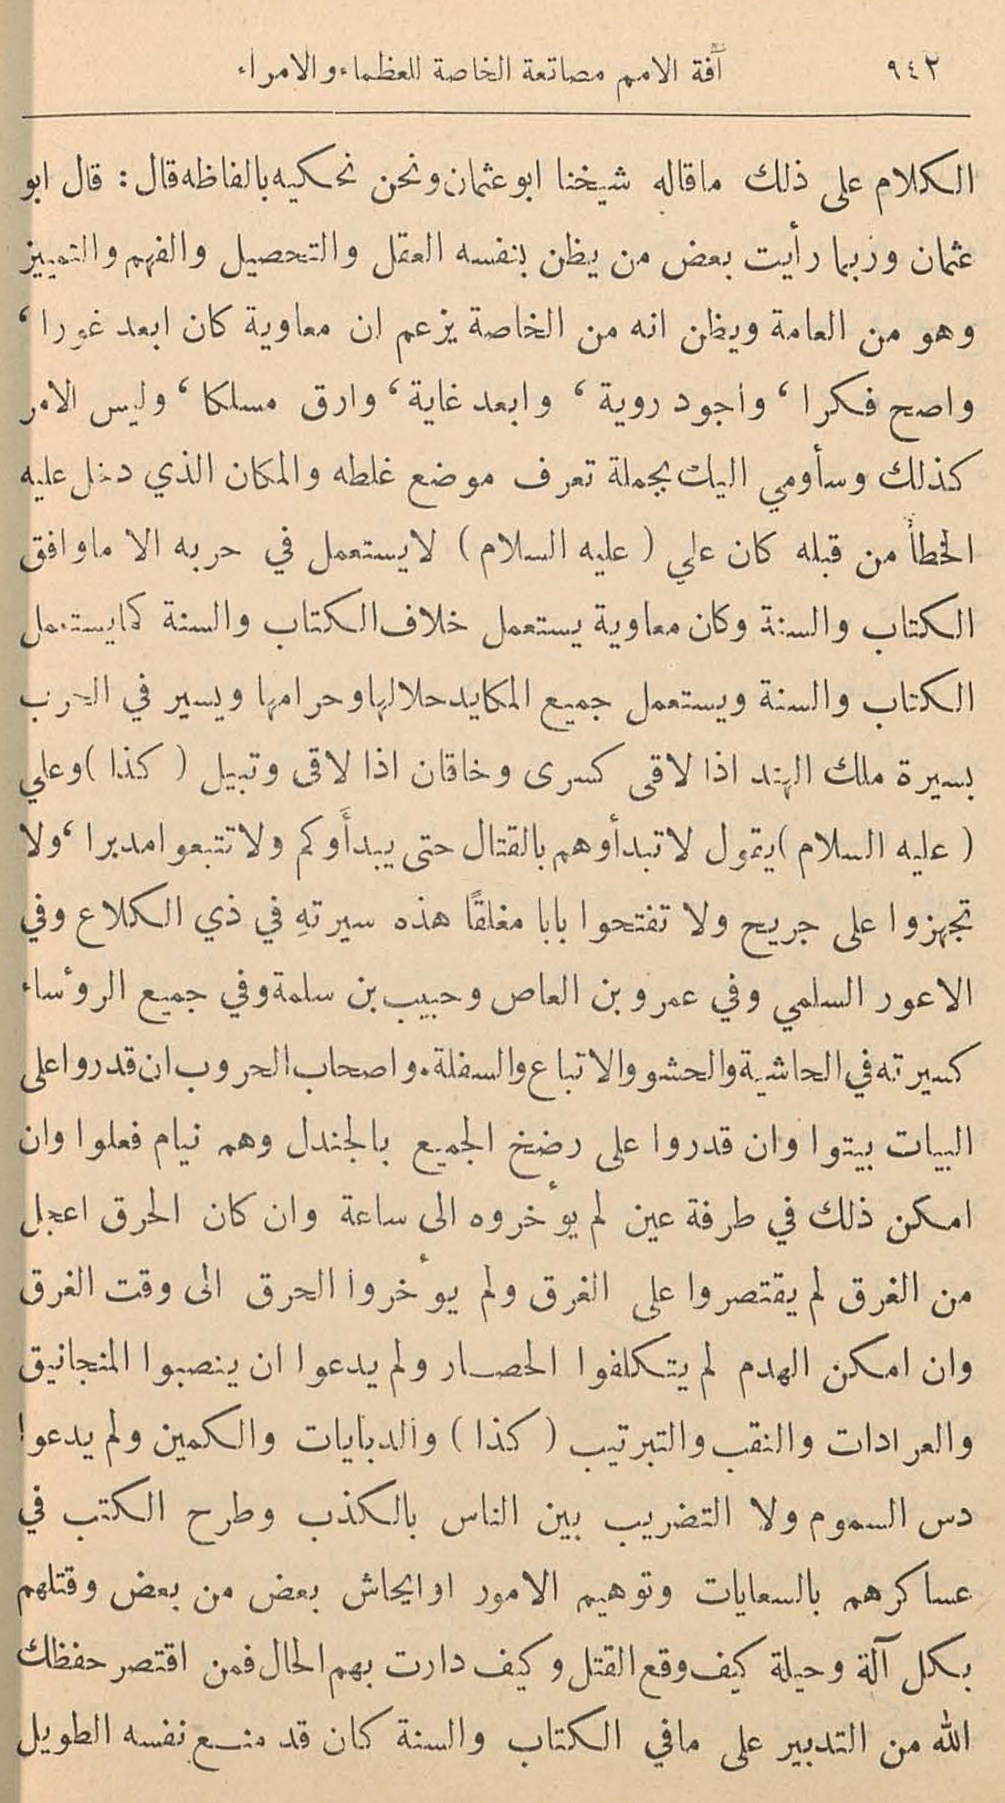 ٩٤٢ آفة الامم مصانعة الخاصة للعظماء والامراء
الكلام على ذلك ماقاله شيخنا ابوعثمان ونحن نحكيه بالفاظه قال : قال ابو
عثمان وربما رأيت بعض من يظن بنفسه العقل والتحصيل والفهم والتمييز
وهو من العامة ويظن انه من الخاصة يزعم ان معاوية كان ابعد غورا ،
واصح فكرا ، واجود روية ، وابعد غاية ، وارق مسلكا ، وليس الامر
كذلك وسأومي اليك بجملة تعرف موضع غلطه والمكان الذي دخل عليه
الخطأ من قبله كان علي ( عليه السلام ) لايستعمل في حربه الا ماوافق
الكتاب والسنة وكان معاوية يستعمل خلاف الكتاب والسنة كمايستعمل
الكتاب والسنة ويستعمل جميع المكايد حلالها وحرامها ويسير في الحرب
بسيرة ملك الهند اذا لاقى كسرى وخاقان اذا لاقى وتبيل ( كذا ) وعلي
( عليه السلام ) يقول لاتبدأوهم بالقتال حتى يبدأوكم ولاتتبعوا مدبرا ، ولا
تجهزوا على جريح ولا تفتحوا بابا مغلقًا هذه سيرتهِ في ذي الكلاع وفي
الاعور السلمي وفي عمرو بن العاص وحبيب بن سلمة وفي جميع الروٴساء
كسيرته في الحاشية والحشو والاتباع والسفلة . واصحاب الحروب ان قدروا على
البيات بيتوا وان قدروا على رضخ الجميع بالجندل وهم نيام فعلوا وان
امكن ذلك في طرفة عين لم يوٴخروه الى ساعة وان كان الحرق اعجل
من الغرق لم يقتصروا على الغرق ولم يوٴخروا الحرق الى وقت الغرق
وان امكن الهدم لم يتكلفوا الحصار ولم يدعوا ان ينصبوا المنجانيق
والعرادات والنقب والتبرتيب ( كذا ) والدبابات والكمين ولم يدعوا
دس السموم ولا التضريب بين الناس بالكذب وطرح الكتب في
عساكرهم بالسعايات وتوهيم الامور اوايحاش بعض من بعض وقتلهم
بكل آلة وحيلة كيف وقع القتل وكيف دارت بهم الحال فمن اقتصر حفظك
الله من التدبير على مافي الكتاب والسنة كان قد منع نفسه الطويل